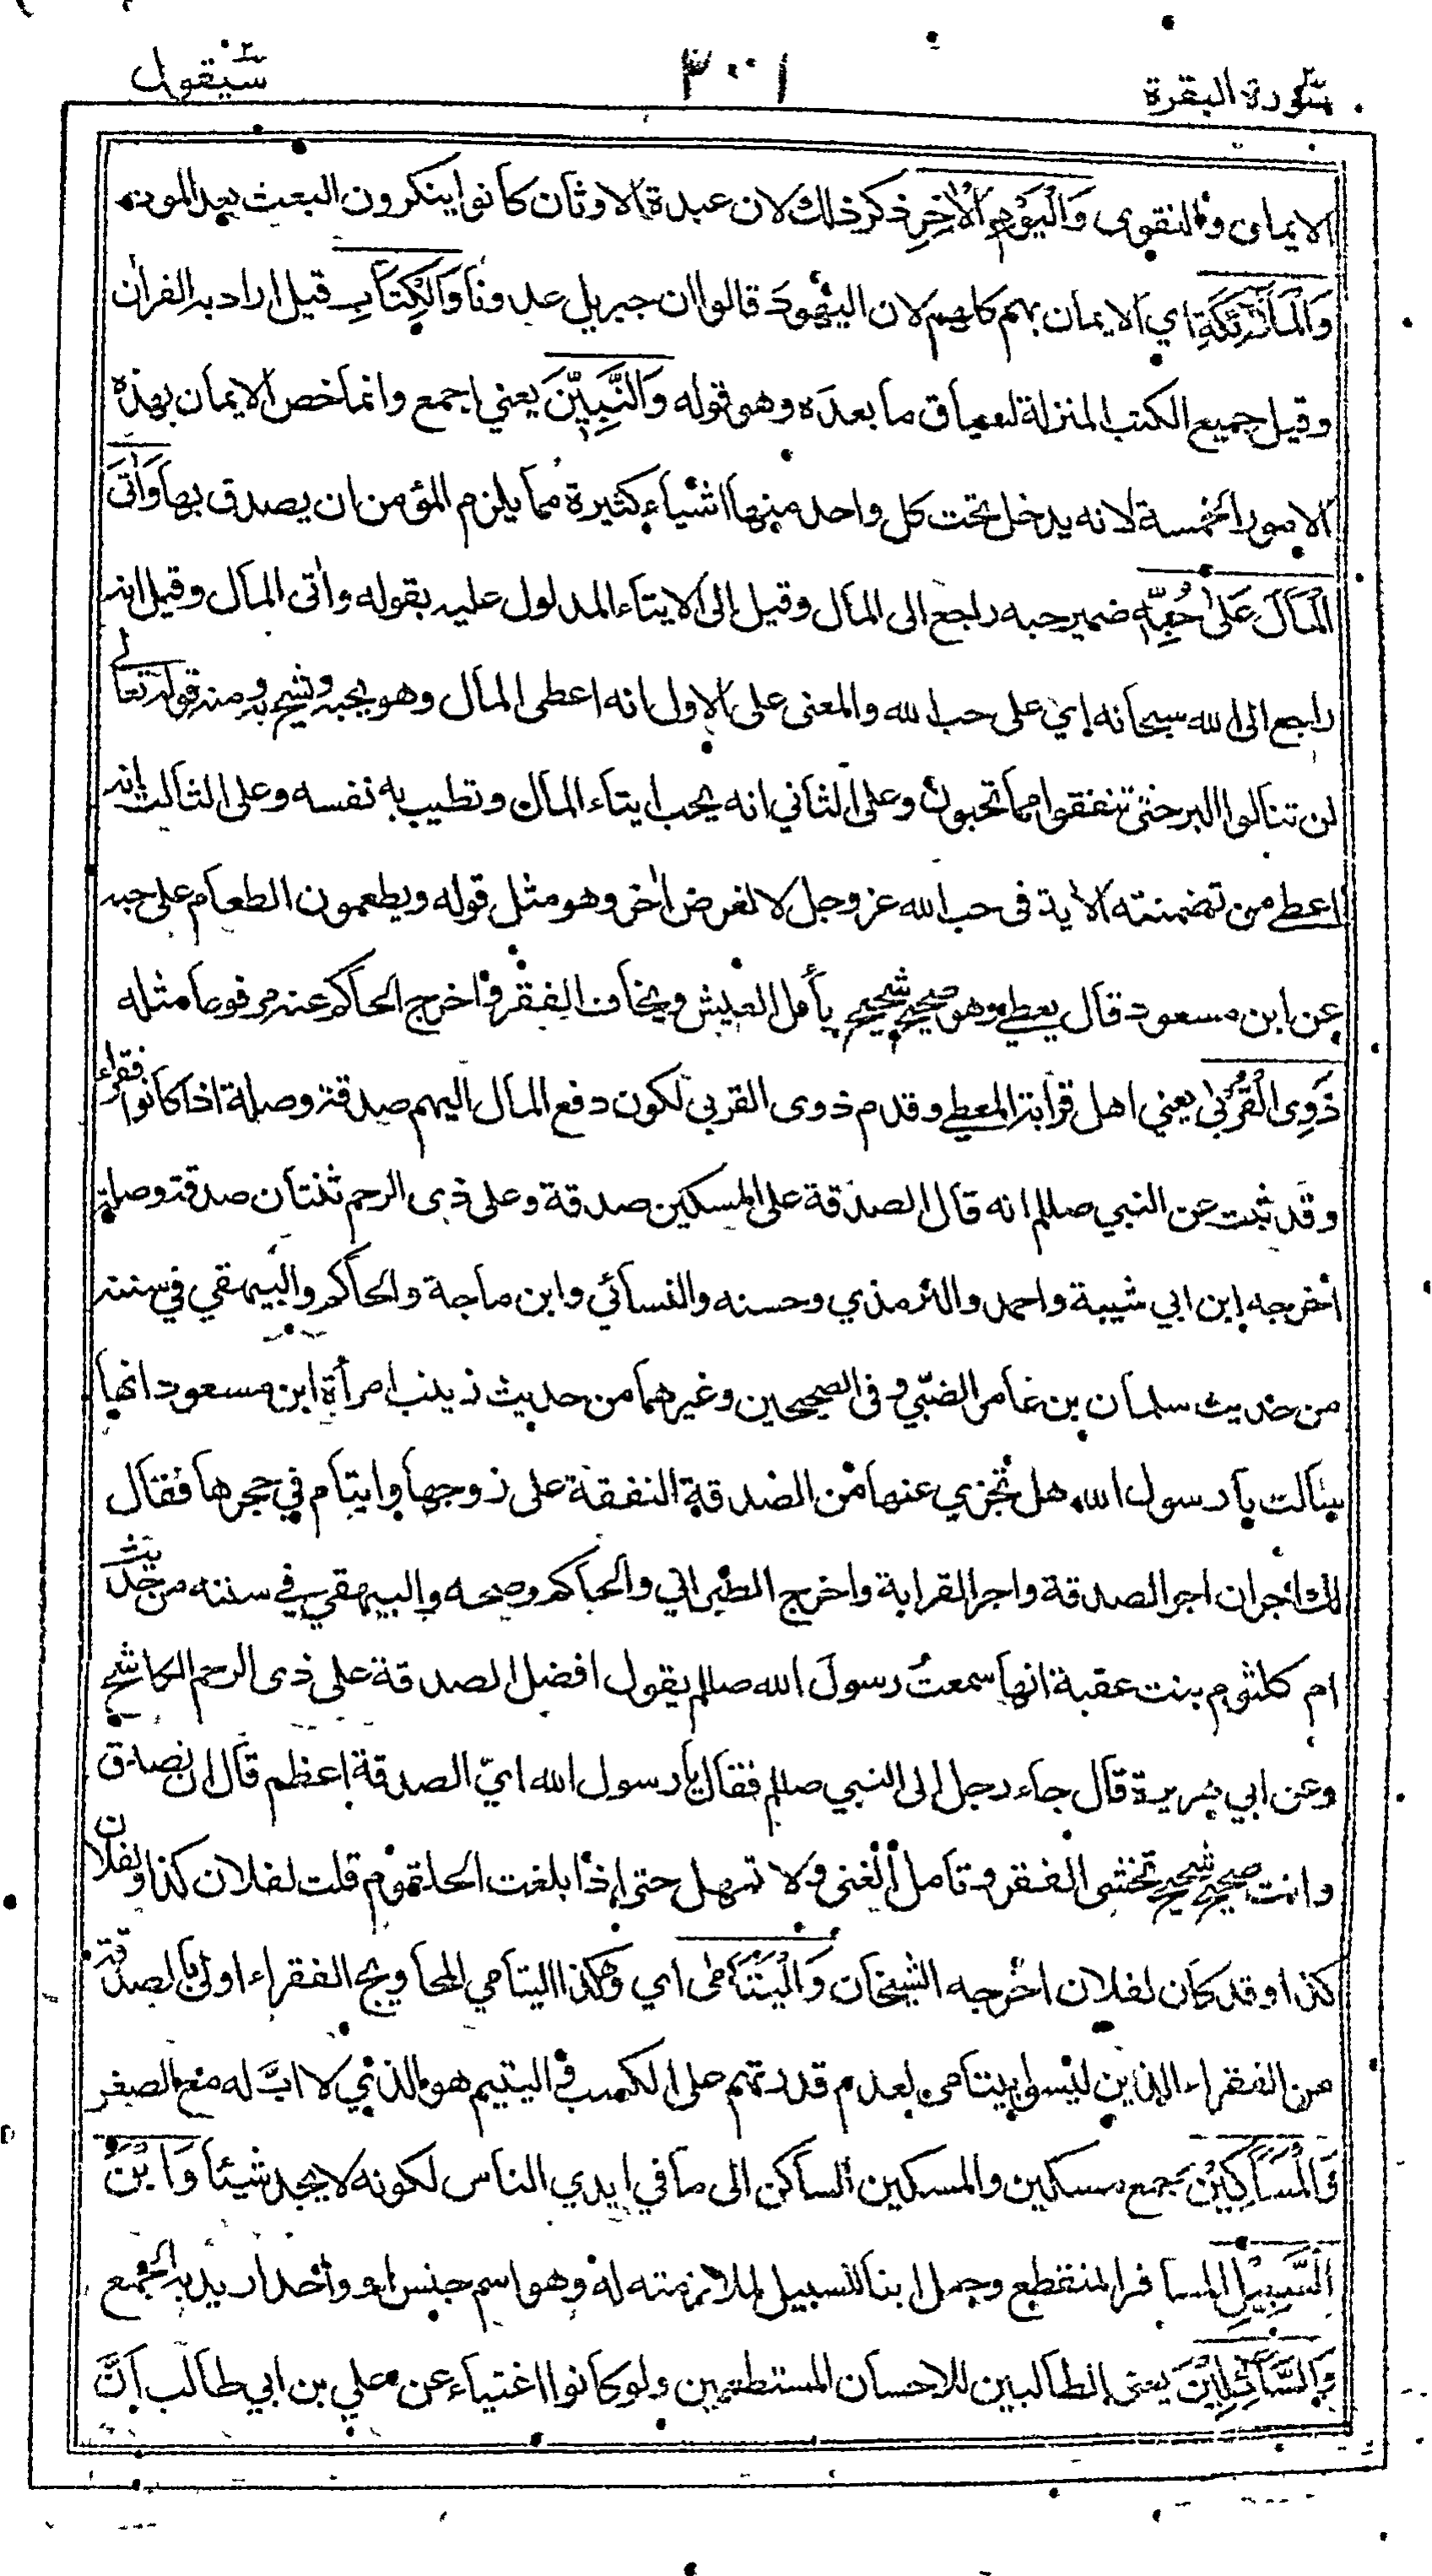 سورة البقرة ٣٠١ سيقول
الايمان والتقوى وَالْيَوْمِ الْآخِرِ ذكر ذلك لان عبدة الاوثان كانوا ينكرون البعث بعد الموت
وَالْمَلَآئِكَةِ اي الايمان بهم كلهم لان اليهود قالوا ان جبريل عدونا وَالْكِتَابِ قيل اراد به القرأن
وقيل جميع الكتب المنزلة لسياق ما بعده وهو قوله وَالنَّبِيِّنَ يعني اجمع وانما خص الايمان بهذه
الامور الخمسة لانه يدخل تحت كل واحد منها اشياء كثيرة مما يلزم المؤمن ان يصدق بها وَاٰتَى
الْمَالَ عَلٰى حُبِّهٖ ضمير حبه راجع الى المال وقيل الى الايتاء المدلول عليه بقوله واٰتى المال وقيل انه
راجع الى الله سبحانه اي على حب الله والمعنى على الاول انه اعطى المال وهو يحبه ويشح به ومنه قوله تعالى
لن تنالوا البر حتى تنفقوا مما تحبون وعلى الثاني انه يحب ايتاء المال وتطيب به نفسه وعلى الثالث انه
اعطى من تضمنته الاية في حب الله عز وجل لا لغرض اٰخر وهو مثل قوله ويطعمون الطعام على حبه
عن ابن مسعود قال يعطي وهو صحيح شحيح يأمل العيش ويخاف الفقر واخرج الحاكم عنه مرفوعا مثله
ذَوِى الْقُرْبٰى يعني اهل قرابة المعطي وقدم ذوى القربى لكون دفع المال اليهم صدقة وصلة اذا كانوا فقراء
وقد ثبت عن النبي صللم انه قال الصدقة على المسكين صدقة وعلى ذى الرحم ثنتان صدقة وصلة
اخرجه ابن ابي شيبة واحمد والترمذي وحسنه والنسائي وابن ماجة والحاكم والبيهقي في سننه
من حديث سلمان بن عامر الضبّي وفى الصحيحين وغيرهما من حديث زينب امرأة ابن مسعود انها
سألت يا رسول الله هل تجزي عنها من الصدقة النفقة على زوجها وايتام في حجرها فقال
لك اجران اجر الصدقة واجر القرابة واخرج الطبراني والحاكم وصححه والبيهقي في سننه من حديث
ام كلثوم بنت عقبة انها سمعت رسول الله صللم يقول افضل الصدقة على ذى الرحم الكاشح
وعن ابي هريرة قال جاء رجل الى النبي صللم فقال يا رسول الله ايّ الصدقة اعظم قال ان تصدق
وانت صحيح شحيح تخشى الفقر وتامل الغنى ولا تمهل حتى اذا بلغت الحلقوم قلت لفلان كذا ولفلان
كذا وقد كان لفلان اخرجه الشيخان وَالْيَتَامٰى اي وهكذا اليتامي المحاويج الفقراء اولى بالصدقة
من الفقراء الذين ليسوا بيتامى لعدم قدرتهم على الكسب في اليتيم هو الذي لا ابَّ له مع الصغر
وَالْمَسَاكِيْنَ جمع مسكين والمسكين الساكن الى ما في ايدي الناس لكونه لا يجد شيئا وَابْنَ
السَّبِيْلِ المسافر المنقطع وجعل ابنا للسبيل لملازمته له وهو اسم جنس او واحد اريد به الجمع
وَالسَّآئِلِيْنَ يعنى الطالبين للاحسان المستطعمين ولو كانوا اغنياء عن علي بن ابي طالب انَّ